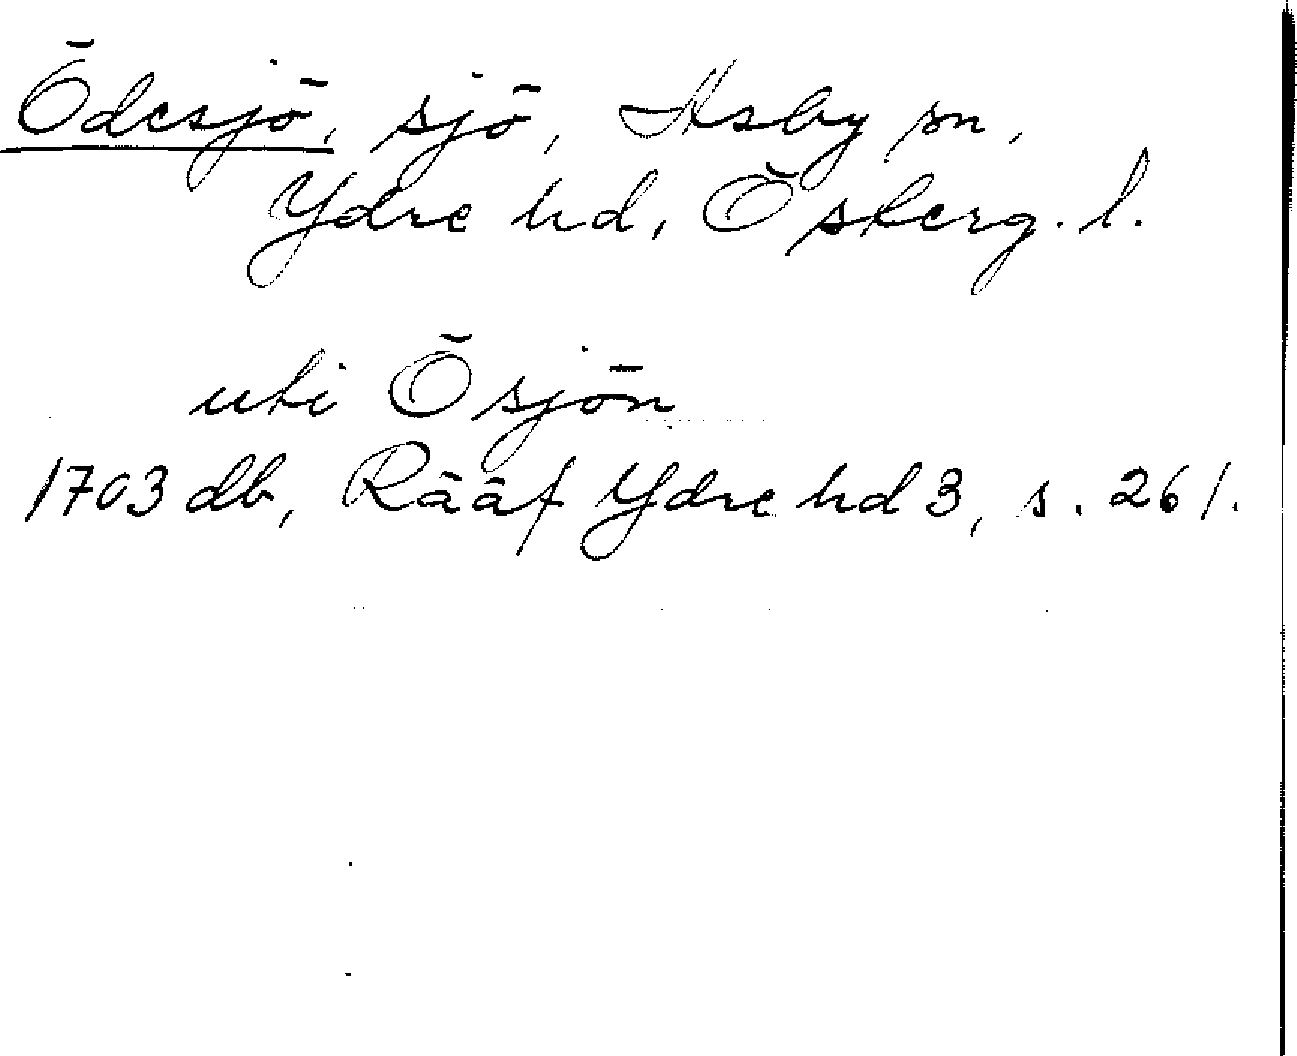 Ödesjö, sjö, Asby sn,
Ydre hd, Österg. l.
uti Ösjön
1703 db, Rääf Ydre hd 3, s. 261.